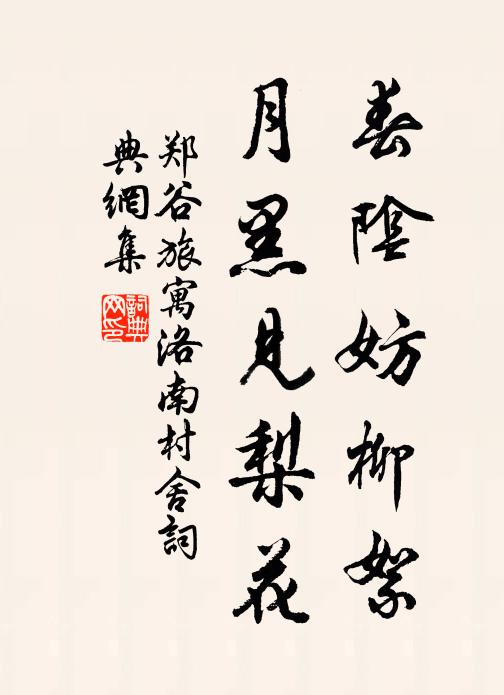 春陰妨柳絮
月黑見梨花
郑谷旅寓洛南村舍詞
典網集
詞典
网印